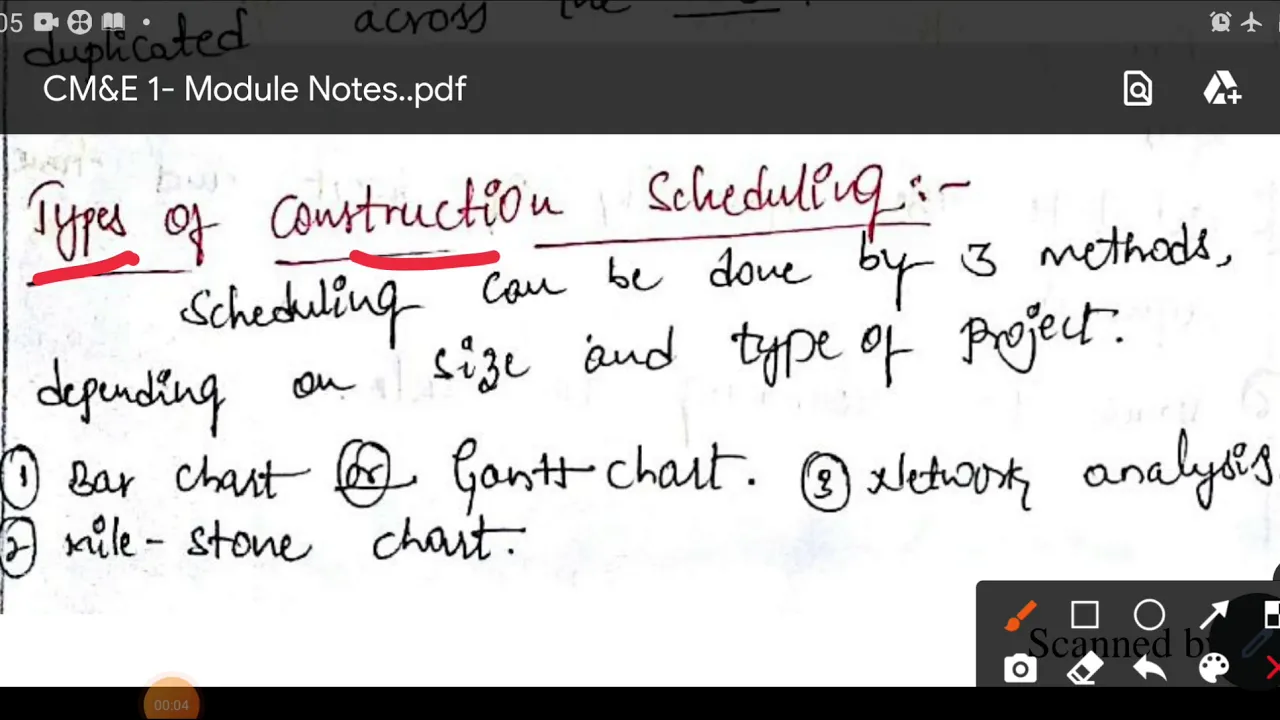 05
duplicated across the
CM&E 1- Module Notes..pdf
Types of Construction Scheduling:-
Scheduling can be done by 3 methods,
depending on size and type of project.
① Bar chart (or) Gantt chart. ③ Network analysis.
② Mile-stone chart.
Scanned by
00:04